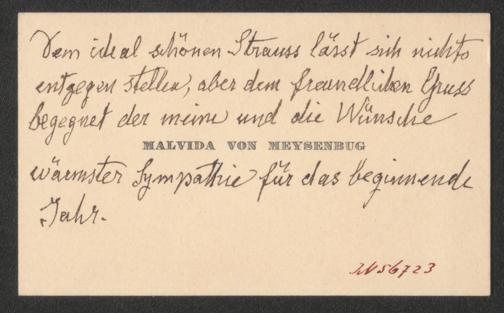 Dem ideal schönen Strauss lässt sich nichts
entgegen stellen, aber dem freundlichen Gruss
begegnet der meine und die Wünsche
MALVIDA VON MEYSENBUG
wärmster Sympathie für das beginnende
Jahr.
IN 56723